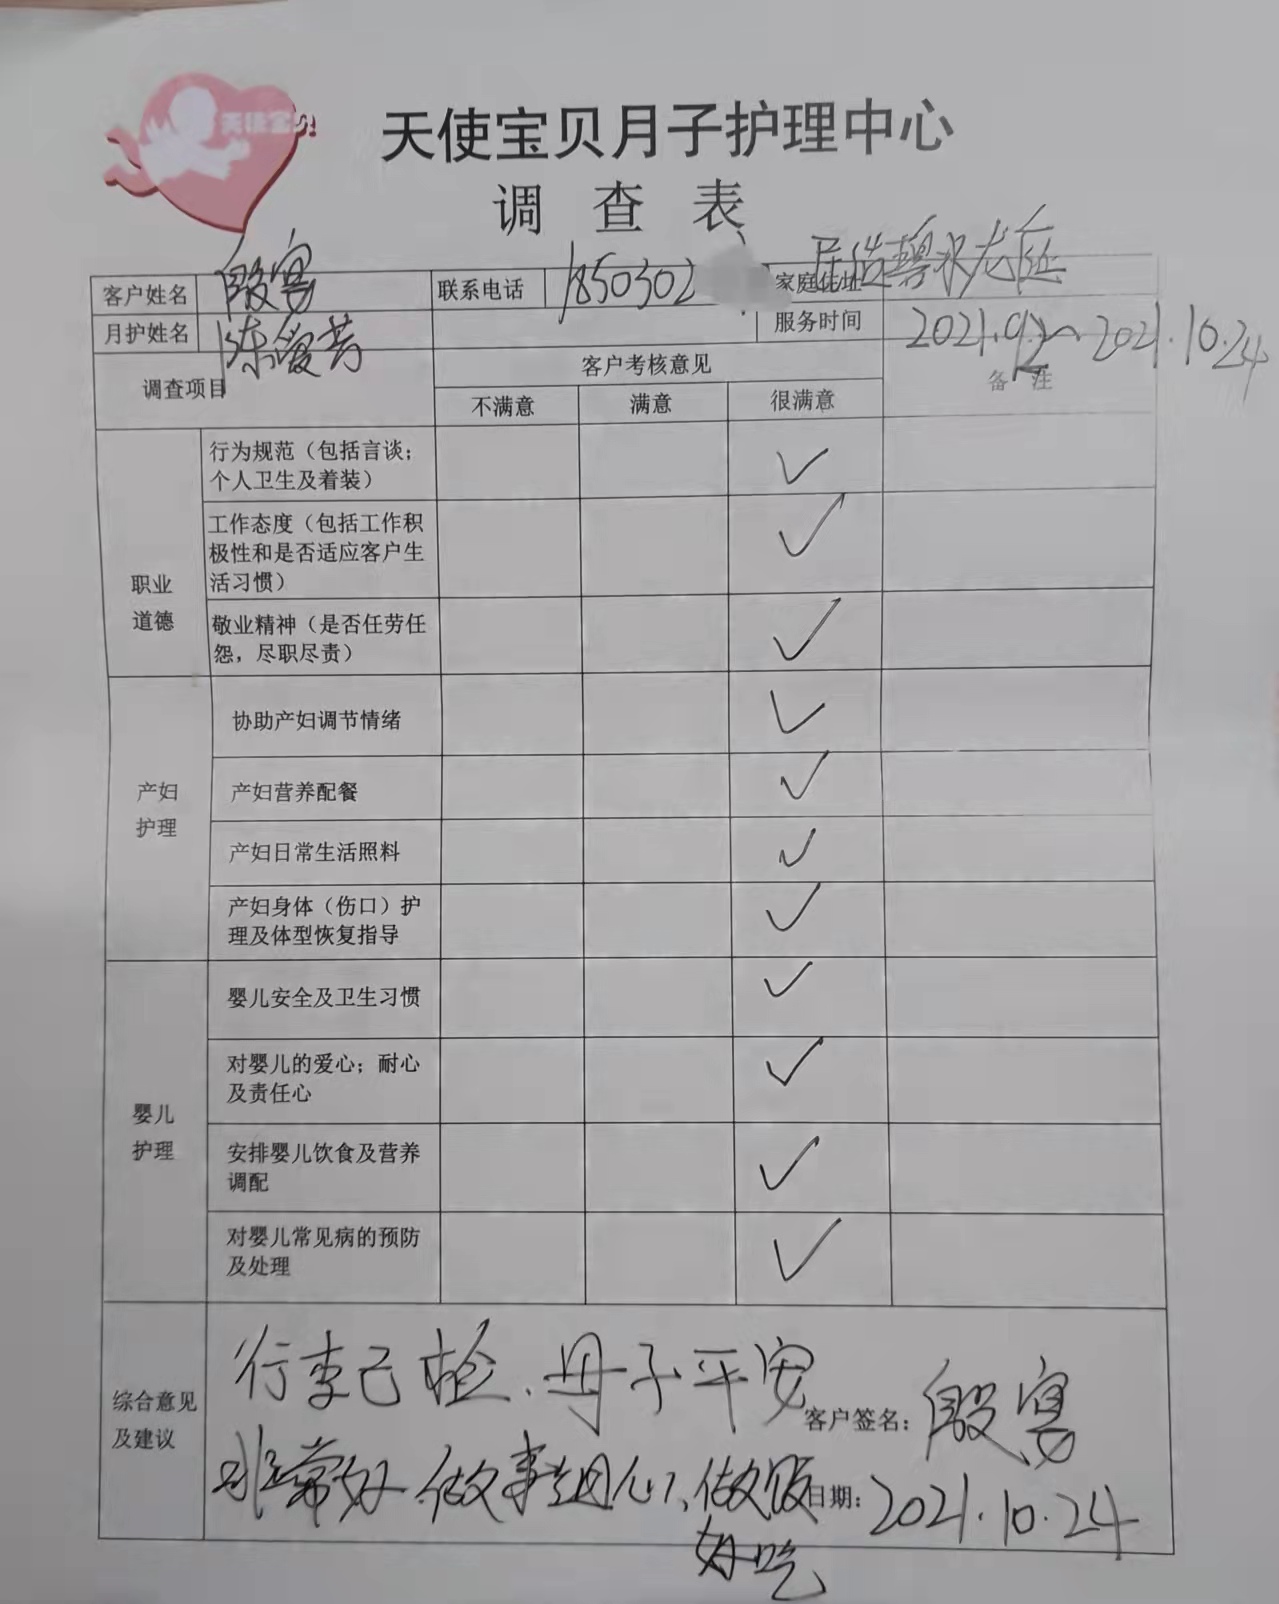 天使宝贝
天使宝贝月子护理中心
调 查 表
客户姓名 殷宴 联系电话 1850302 家庭住址 碧水龙庭
月护姓名 陈爱芳 服务时间 2021.9.12~2021.10.24
调查项目 客户考核意见 备 注
不满意 满意 很满意
职业
道德
行为规范（包括言谈;
个人卫生及着装） ✓
工作态度（包括工作积
极性和是否适应客户生
活习惯） ✓
敬业精神（是否任劳任
怨，尽职尽责） ✓
产妇
护理
协助产妇调节情绪 ✓
产妇营养配餐 ✓
产妇日常生活照料 ✓
产妇身体（伤口）护
理及体型恢复指导 ✓
婴儿
护理
婴儿安全及卫生习惯 ✓
对婴儿的爱心；耐心
及责任心 ✓
安排婴儿饮食及营养
调配 ✓
对婴儿常见病的预防
及处理 ✓
综合意见
及建议
行李已检、母子平安
非常好、做事细心、做饭
好吃
客户签名： 殷宴
日期： 2021.10.24